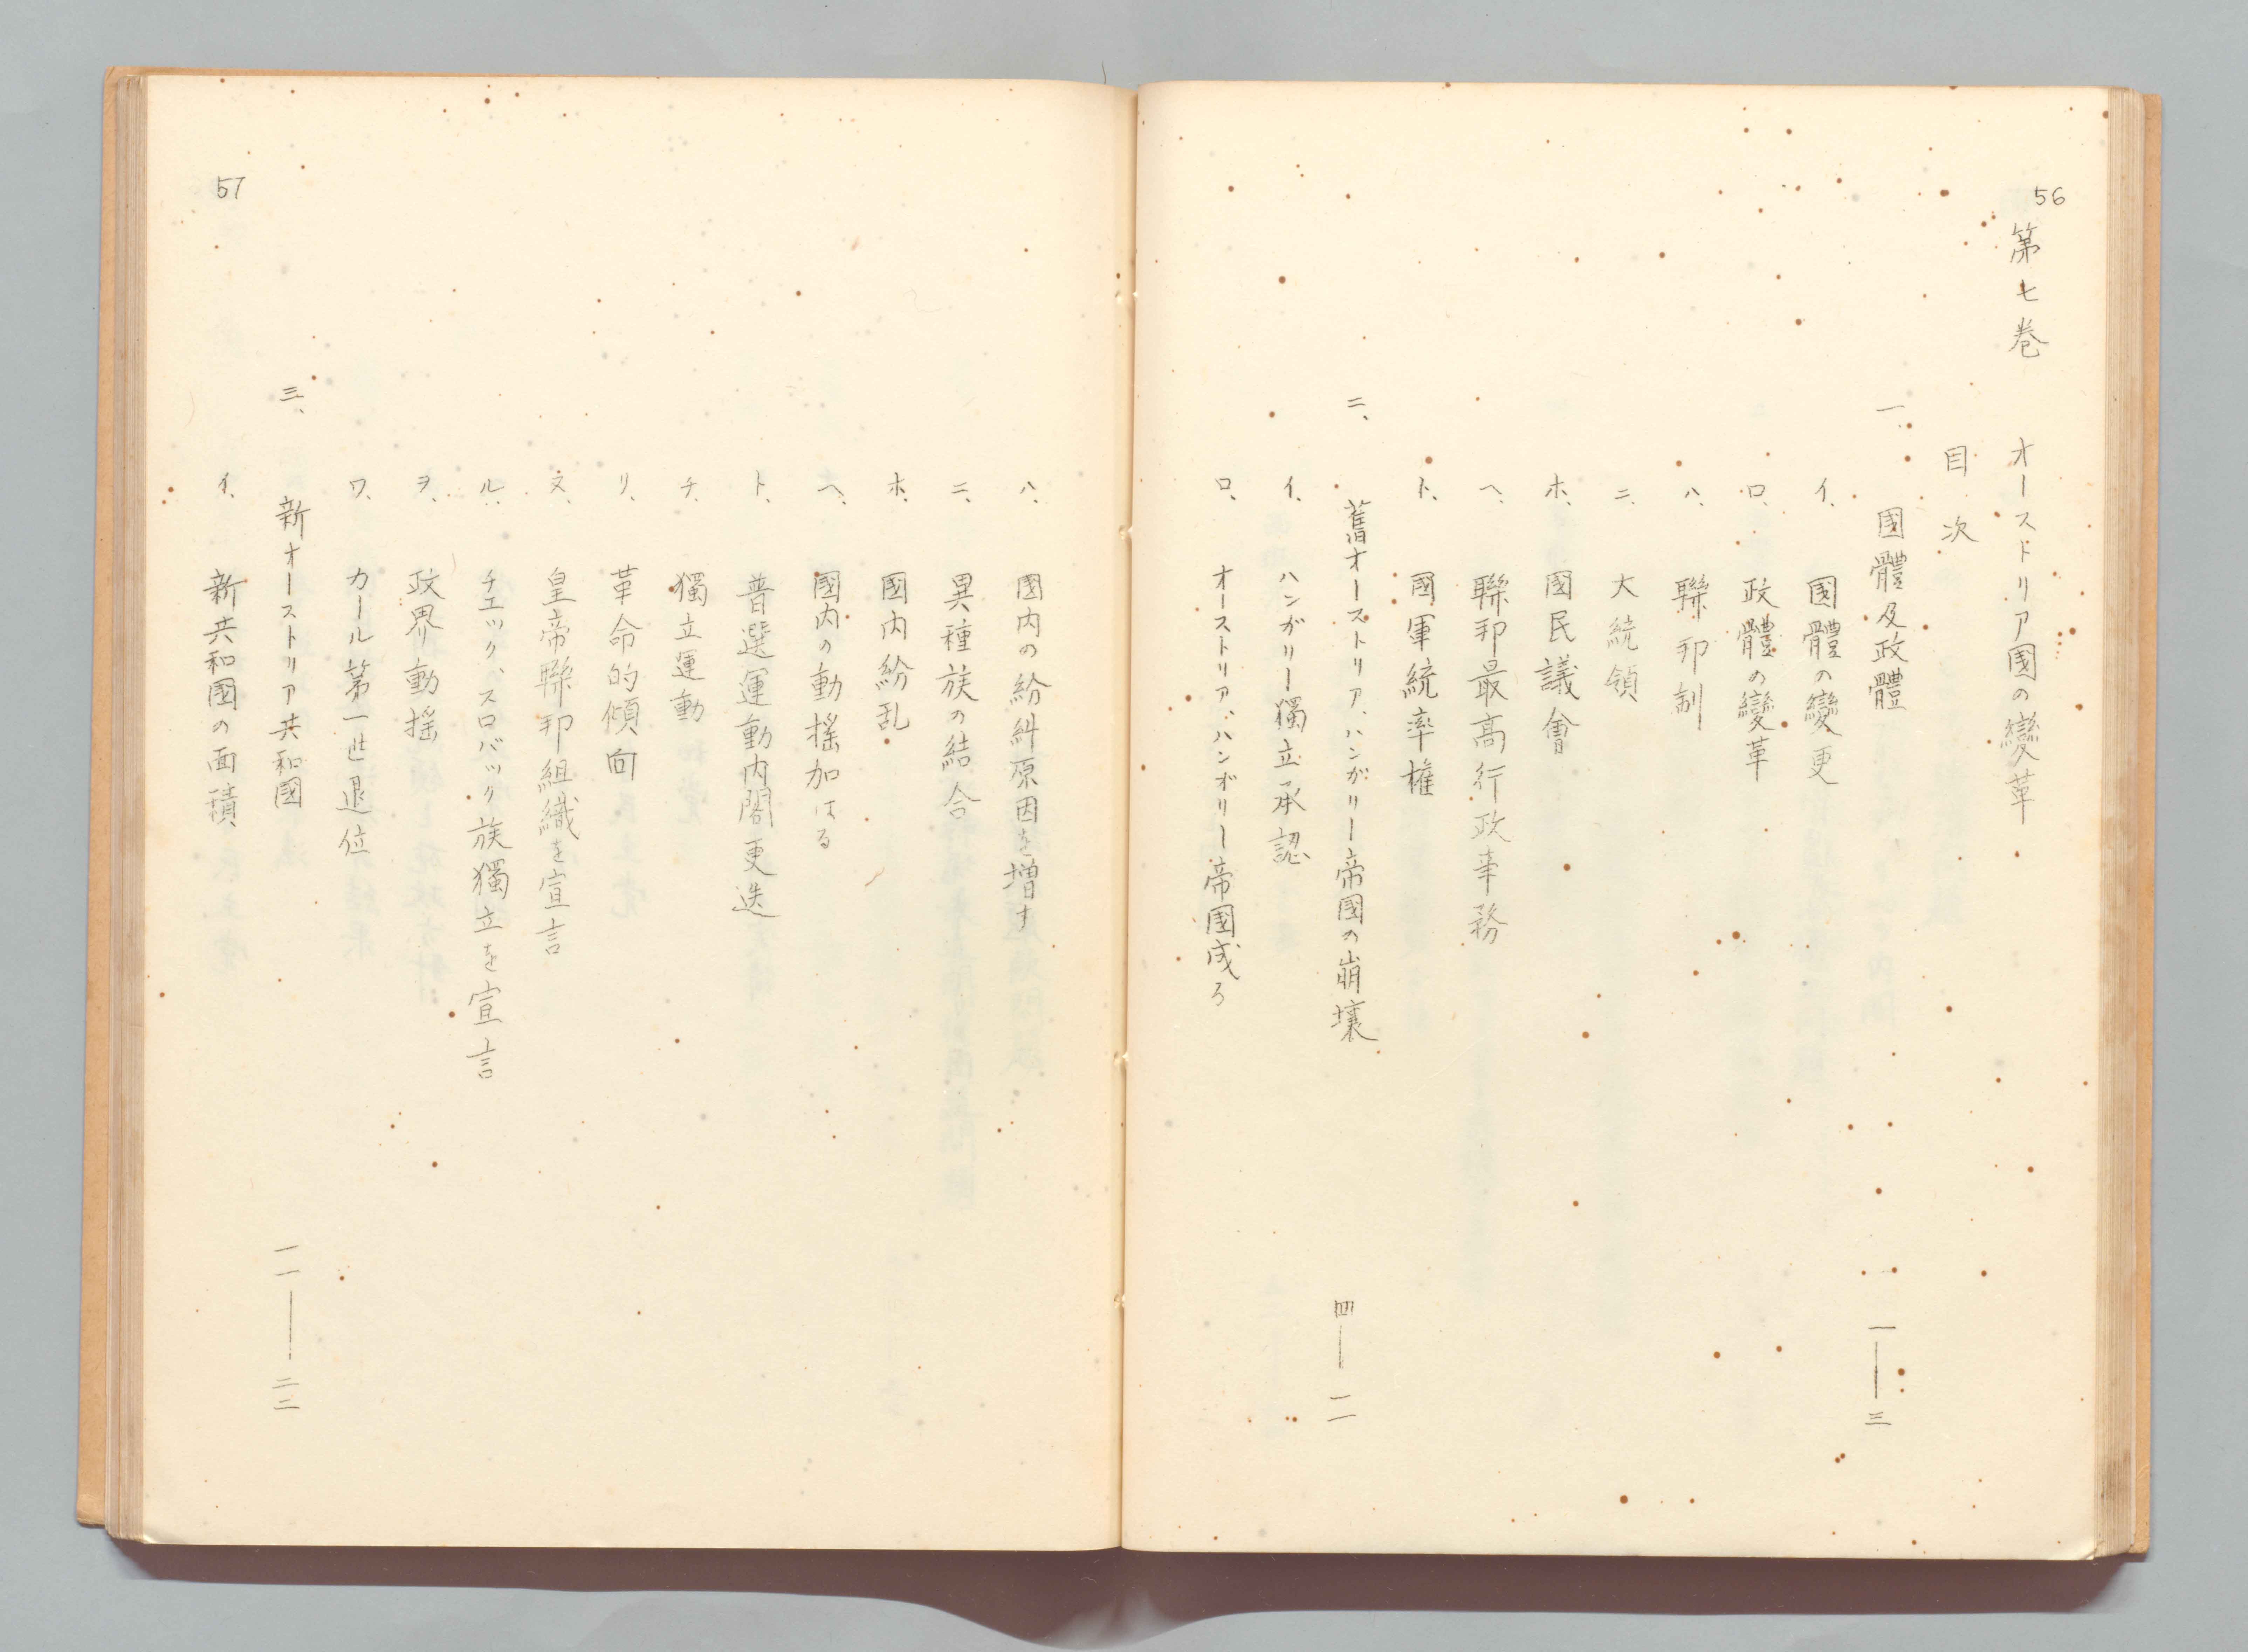 56
第七巻　オーストリア國の變革
目次
一、國體及政體　一―三
イ、國體の變更
ロ、政體の變革
ハ、聯邦制
ニ、大統領
ホ、國民議會
ヘ、聯邦最高行政事務
ト、國軍統率権
二、舊オーストリア、ハンガリー帝國の崩壊　四―一一
イ、ハンガリー獨立承認
ロ、オーストリア、ハンガリー帝國成る
57
ハ、國内の紛糾原因を増す
ニ、異種族の結合
ホ、國内紛乱
ヘ、國内の動揺加はる
ト、普選運動内閣更迭
チ、獨立運動
リ、革命的傾向
ヌ、皇帝聯邦組織を宣言
ル、チエック、スロバック族獨立を宣言
ヲ、政界動揺
ワ、カール第一世退位
三、新オーストリア共和國　一一―二二
イ、新共和國の面積